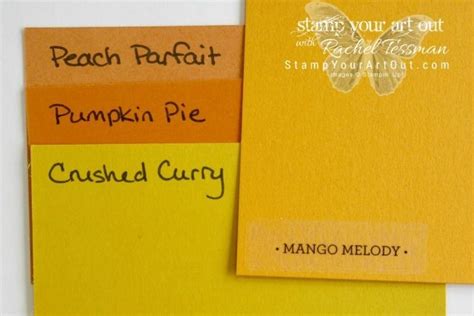 stamp your art out
with Rachel Tessman
StampYourArtOut.com
images © Stampin' Up!
Peach Parfait
Pumpkin Pie
Crushed Curry
• MANGO MELODY •